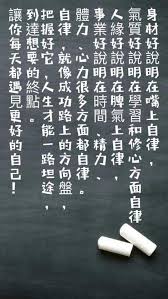 身材好說明在嘴上自律
氣質好說明在學習和修心方面自律
人緣好說明在脾氣上自律,
事業好說明在時間、精力、
體力、心力很多方面都自律。
自律,就像成功路上的方向盤,
把握好它,人生才能一路坦途,
到達想要的終點。
讓你每天都遇見更好的自己!